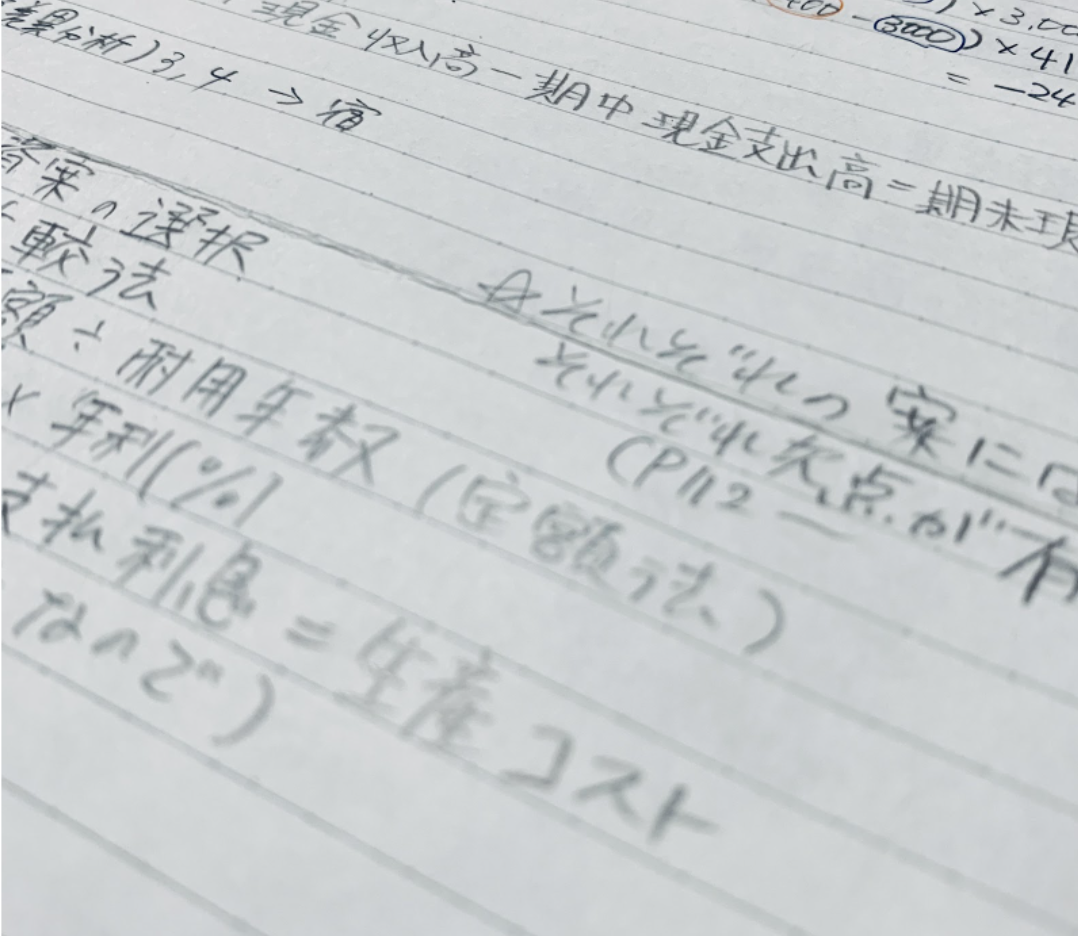 ) × 3,00
400 - (3000)) × 41
= -24
現金収入高 - 期中現金支出高 = 期末現
差異分析) 3, 4 → 宿
資案の選択
較法
額 ÷ 耐用年数 (定額法)
× 年利(%)
支払利息 = 生産コスト
なので)
☆それぞれの案には
それぞれ欠点が有
(P112 ー